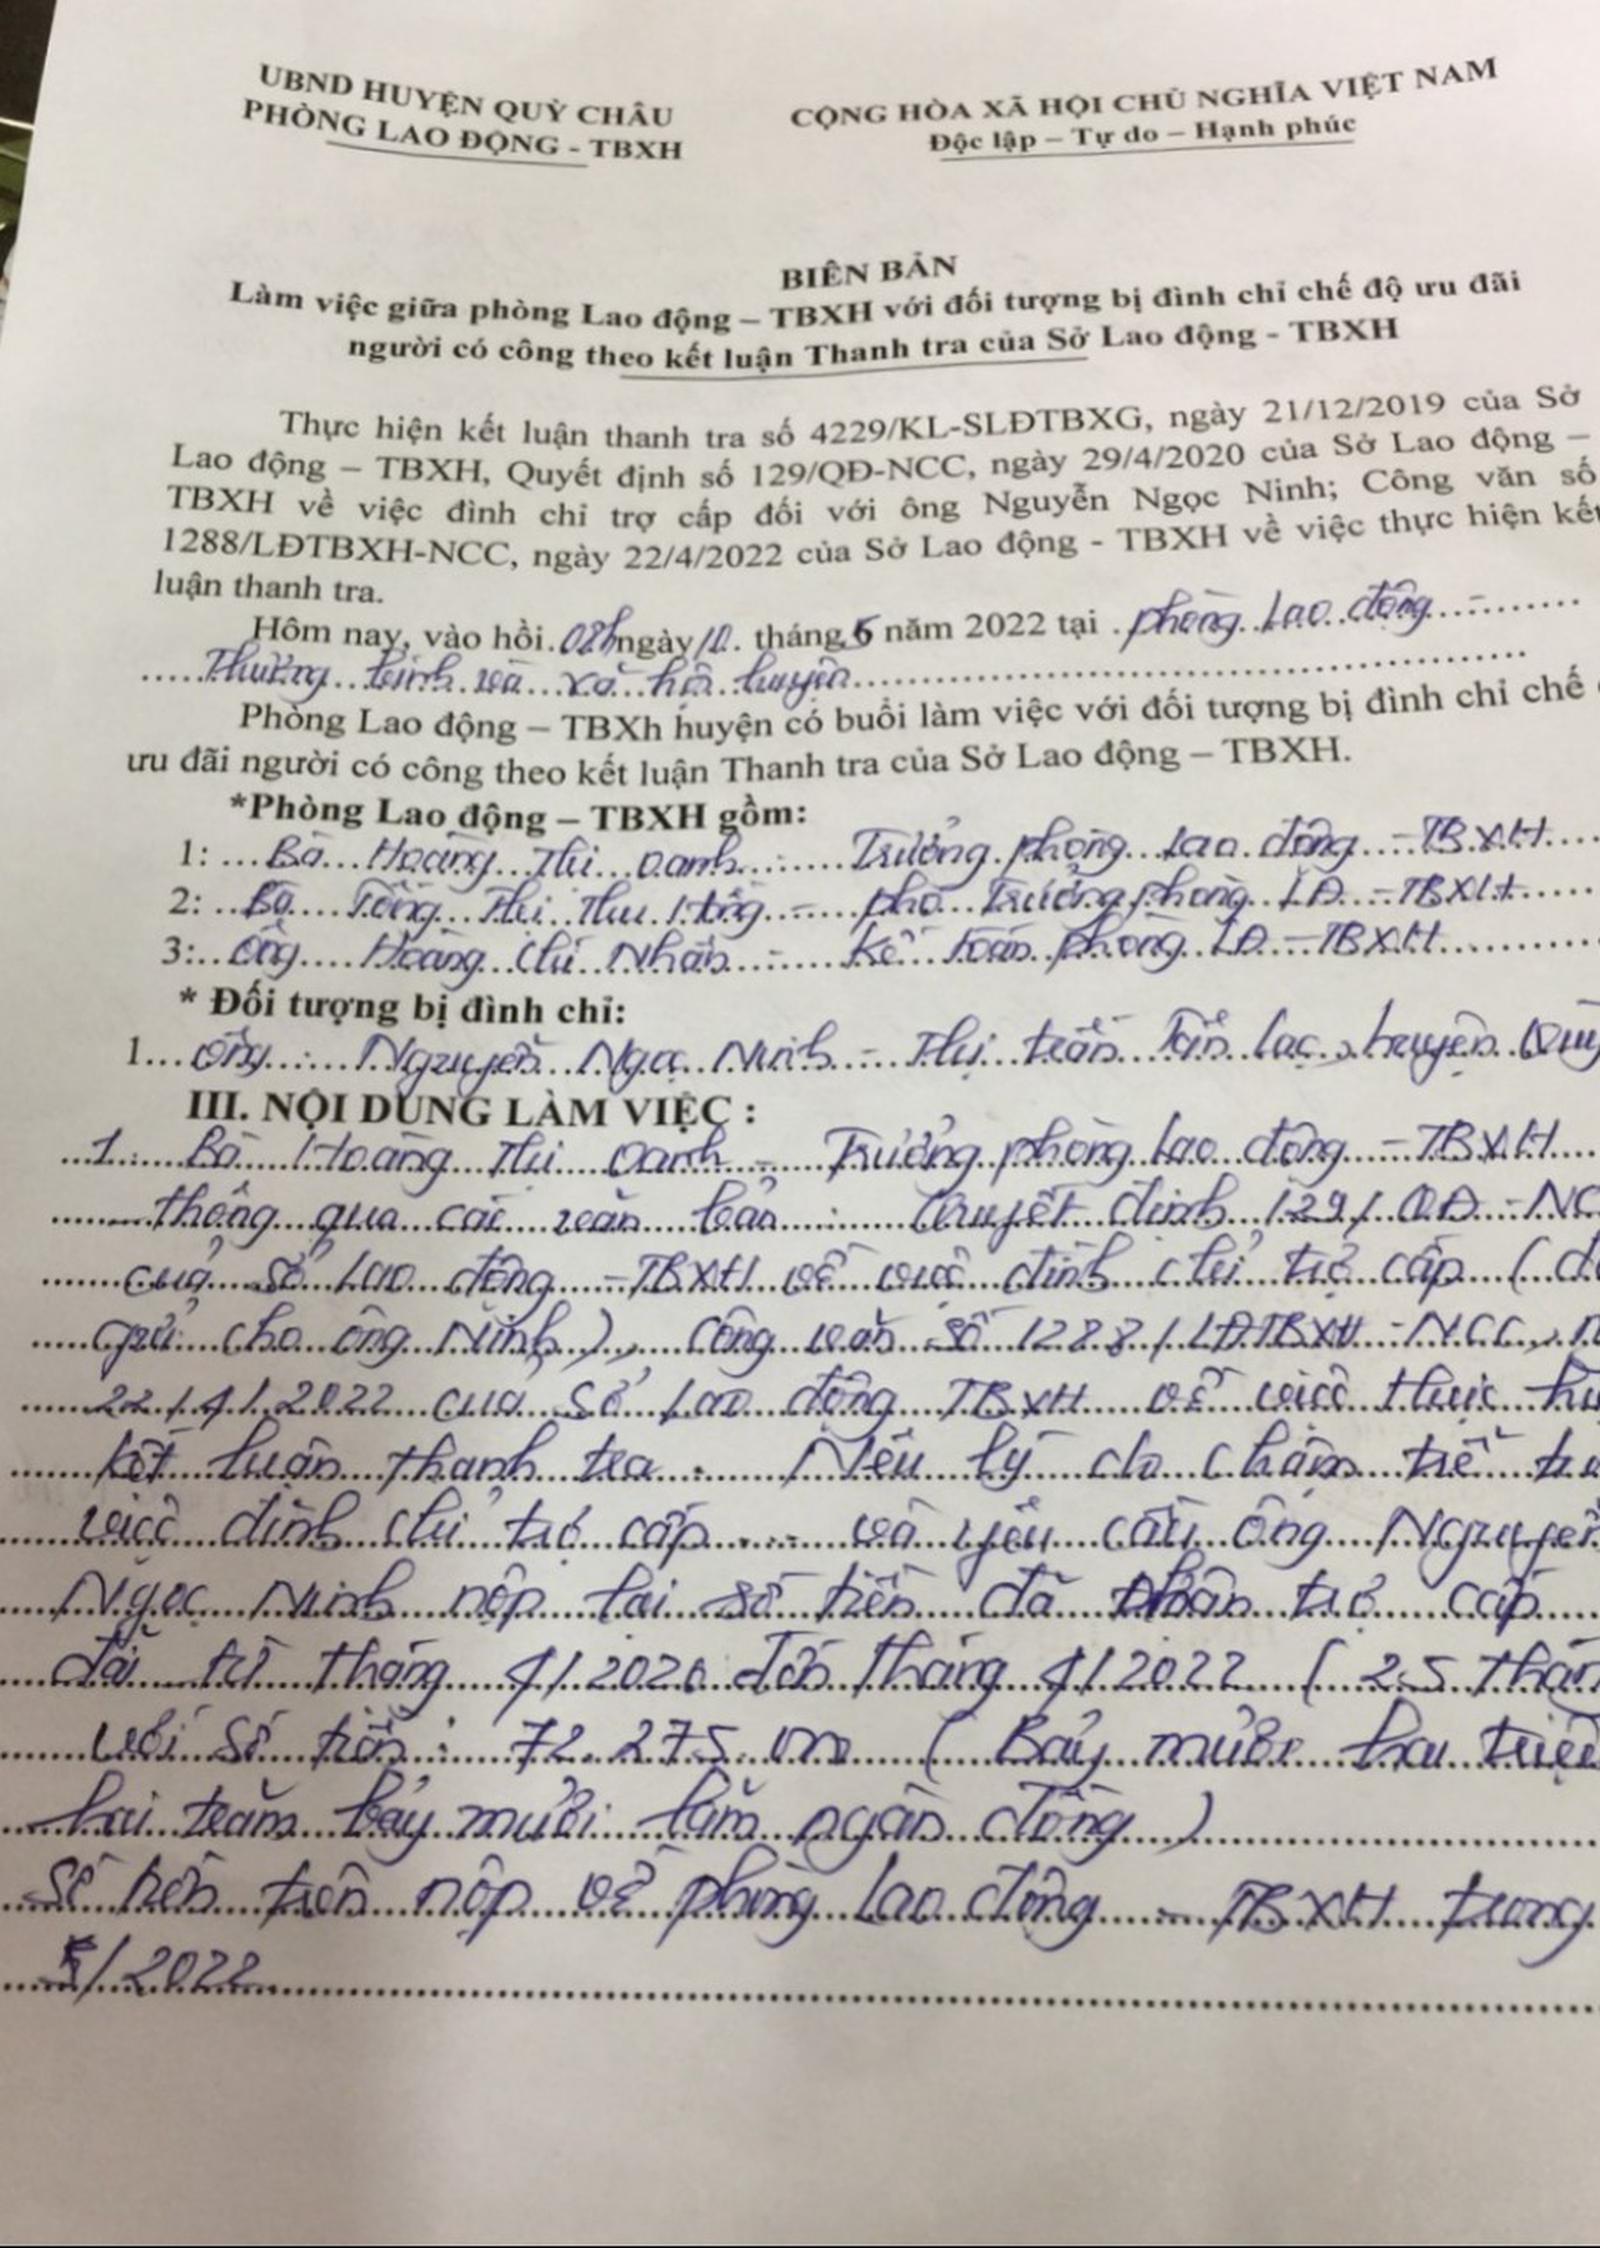 UBND HUYỆN QUỲ CHÂU
PHÒNG LAO ĐỘNG - TBXH
CỘNG HÒA XÃ HỘI CHỦ NGHĨA VIỆT NAM
Độc lập – Tự do – Hạnh phúc
BIÊN BẢN
Làm việc giữa phòng Lao động – TBXH với đối tượng bị đình chỉ chế độ ưu đãi
người có công theo kết luận Thanh tra của Sở Lao động - TBXH
Thực hiện kết luận thanh tra số 4229/KL-SLĐTBXG, ngày 21/12/2019 của Sở
Lao động – TBXH, Quyết định số 129/QĐ-NCC, ngày 29/4/2020 của Sở Lao động –
TBXH về việc đình chỉ trợ cấp đối với ông Nguyễn Ngọc Ninh; Công văn số
1288/LĐTBXH-NCC, ngày 22/4/2022 của Sở Lao động - TBXH về việc thực hiện kết
luận thanh tra.
Hôm nay, vào hồi 08h ngày 10 tháng 5 năm 2022 tại phòng Lao động -
Thương binh và xã hội huyện
Phòng Lao động – TBXh huyện có buổi làm việc với đối tượng bị đình chỉ chế
ưu đãi người có công theo kết luận Thanh tra của Sở Lao động – TBXH.
*Phòng Lao động – TBXH gồm:
1: Bà Hoàng Thị Oanh - Trưởng phòng Lao động - TBXH
2: Bà Tống Thị Thu Hồng - phó Trưởng phòng LĐ - TBXH
3: Ông Hoàng Chí Nhân - Kế toán phòng LĐ - TBXH
* Đối tượng bị đình chỉ:
1 ông: Nguyễn Ngọc Ninh - Thị trấn Tân Lạc, huyện Quỳ
III. NỘI DUNG LÀM VIỆC :
1. Bà Hoàng Thị Oanh - Trưởng phòng lao động - TBXH
thông qua các văn bản: Quyết định 129/QĐ-NC
của Sở Lao động - TBXH về việc đình chỉ trợ cấp (đ
gửi cho ông Ninh), Công văn số 1288/LĐTBXH-NCC, n
22/4/2022 của Sở Lao động TBXH về việc thực hi
kết luận thanh tra. Nêu lý do chậm trễ
việc đình chỉ trợ cấp và yêu cầu ông Nguyễn
Ngọc Ninh nộp lại số tiền đã nhận trợ cấp
đãi từ tháng 4/2020 đến tháng 4/2022 (25 thán
với số tiền: 72.275.000 (Bảy mươi hai triệ
hai trăm bảy mươi lăm ngàn đồng)
Số tiền trên nộp về phòng Lao động - TBXH trong
5/2022